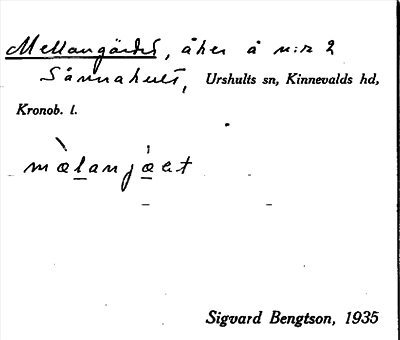 Mellangärdet, åker å n:r 2
Sånnahult, Urshults sn, Kinnevalds hd,
Kronob. l.
mælanjæt
Sigvard Bengtson, 1935